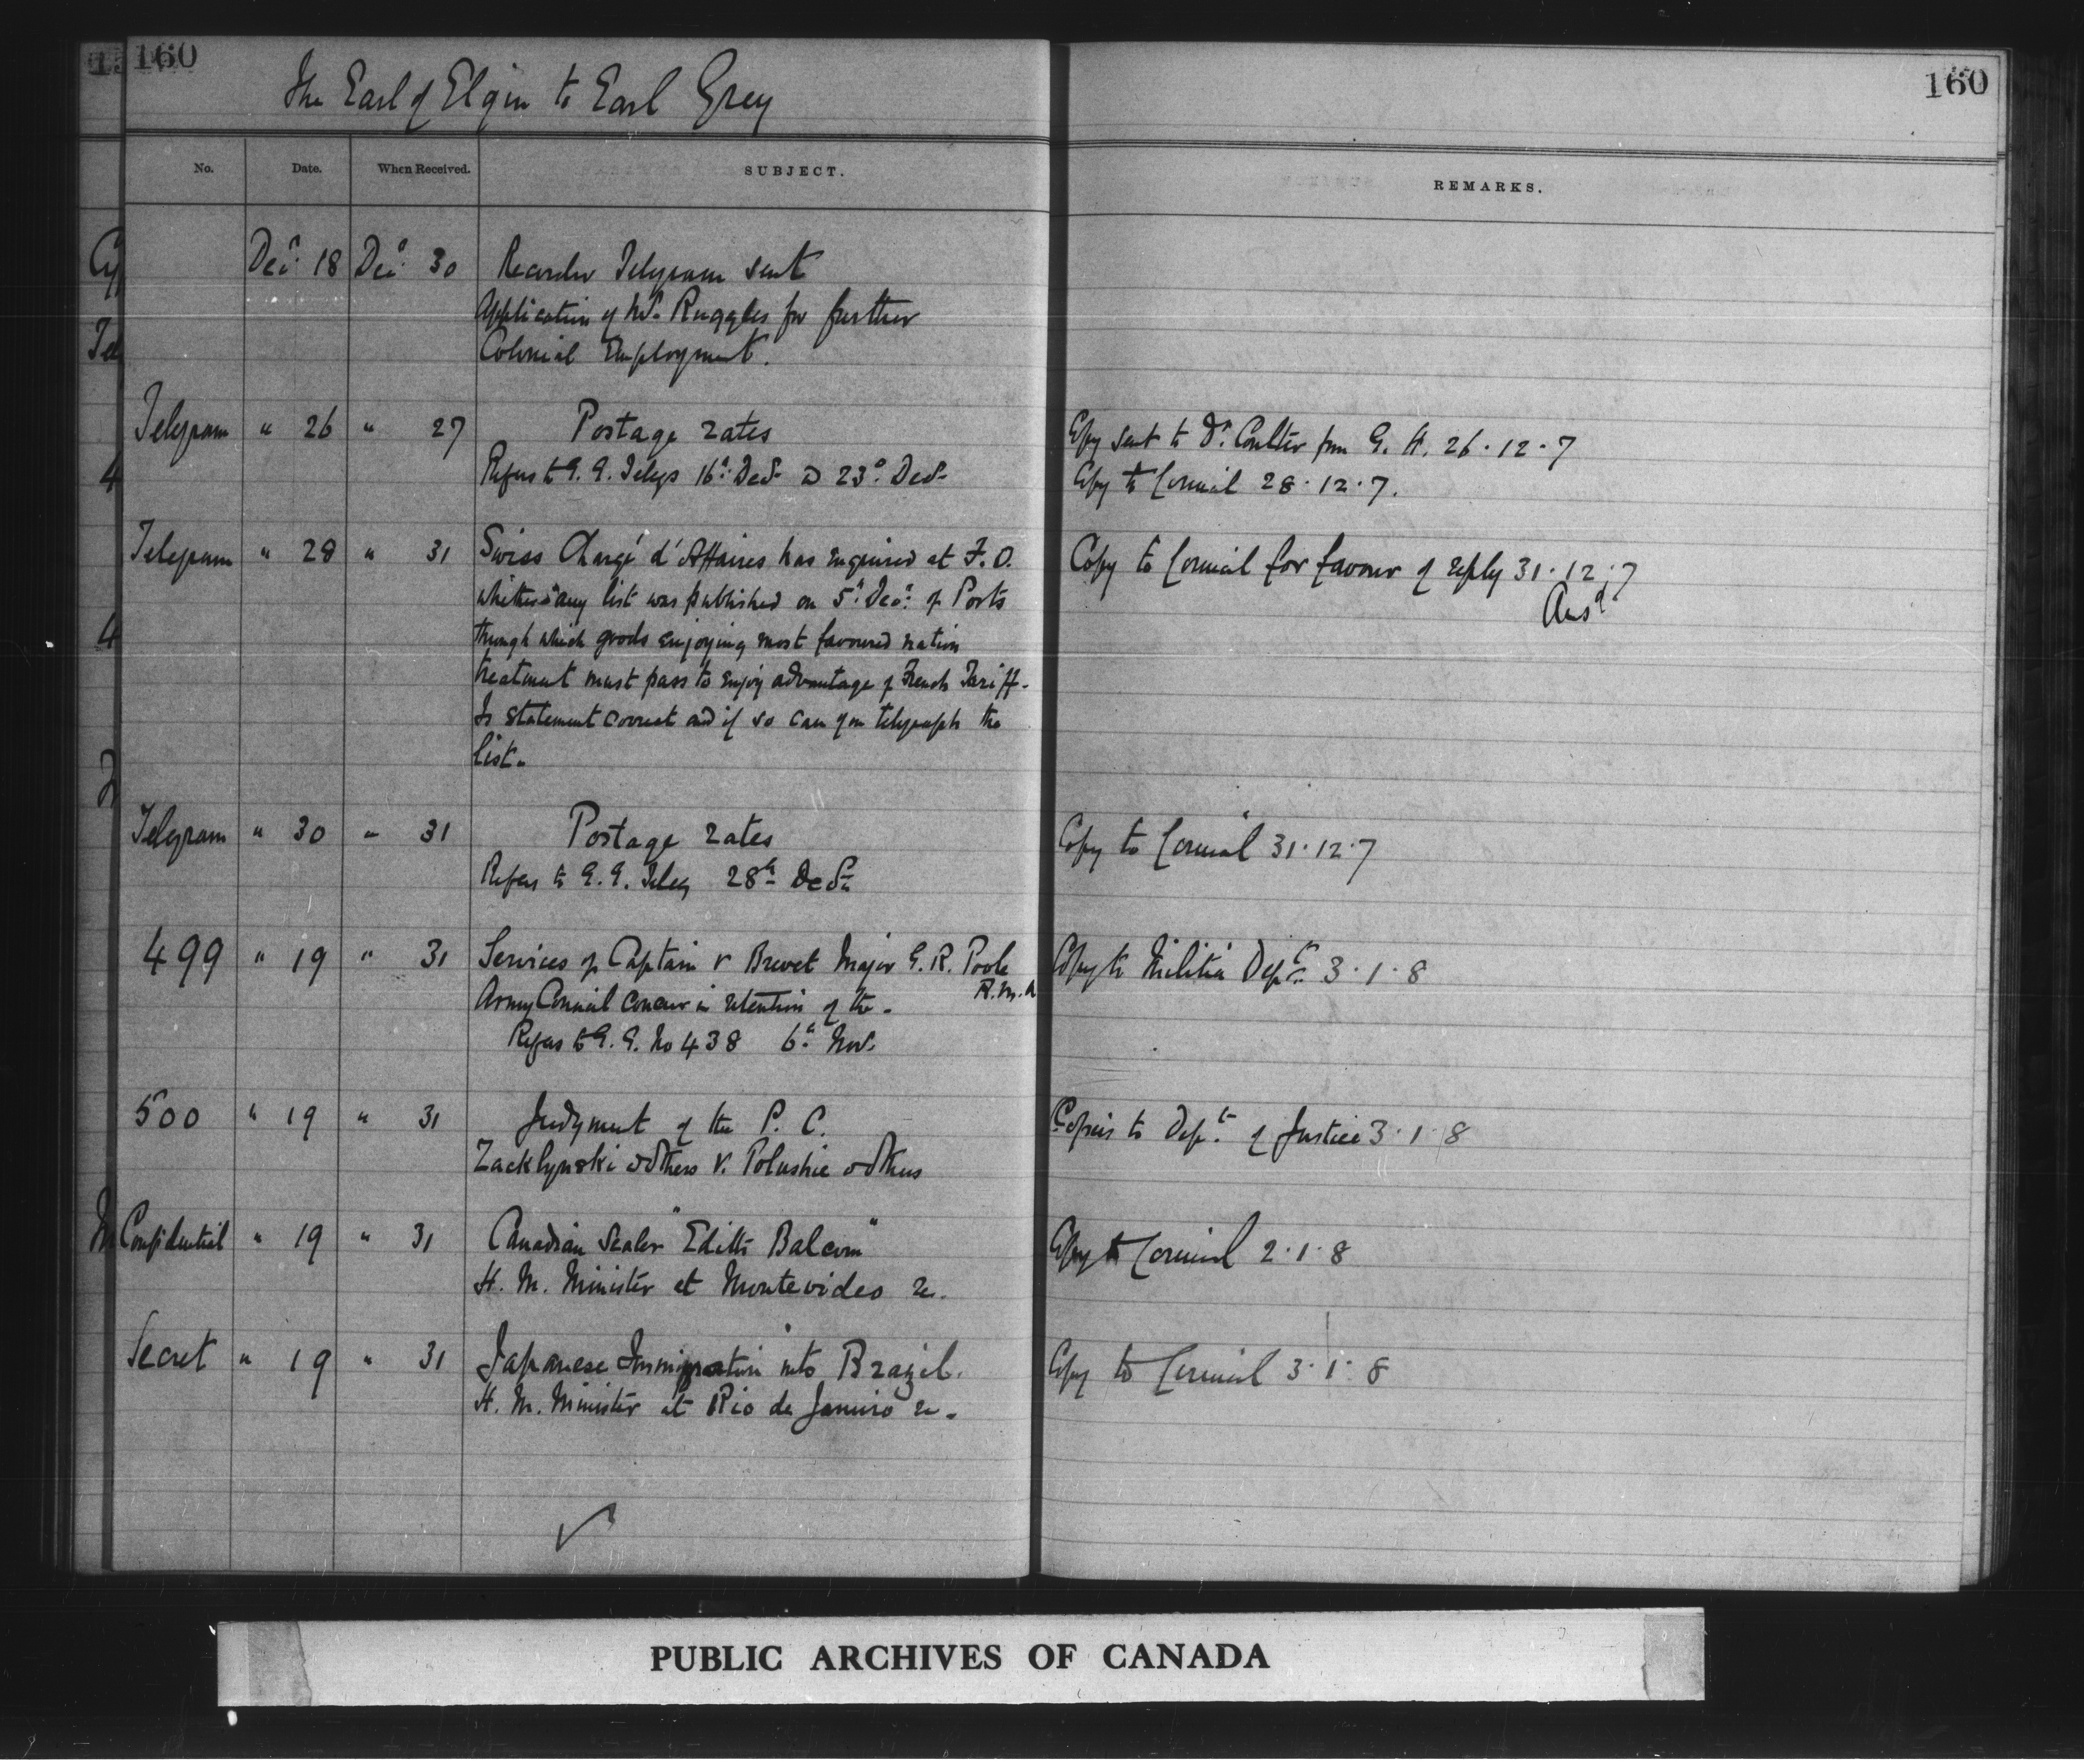 160
The Earl of Elgin to Earl Grey
160
No. Date. When Received. SUBJECT. REMARKS.
Decr. 18 Decr. 30 Recorder Telegram sent
Application of Mr. Ruggles for further
Colonial Employment.
Telegram " 26 " 27 Postage rates Copy sent to Dr. Coulter from G. H. 26.12.7
Refers to G.G. Telegs 16th Decr & 23d Decr Copy to Council 28.12.7.
Telegram " 28 " 31 Swiss Chargé d'Affaires has enquired at F.O. Copy to Council for favour of reply 31.12.7
whether any list was published on 5th Decr. of Ports Ansd.
through which goods enjoying most favoured nation
treatment must pass to enjoy advantage of French Tariff.
Is statement correct and if so can you telegraph the
list.
Telegram " 30 " 31 Postage rates Copy to Council 31.12.7
Refers to G.G. Teleg 28th Decr
499 " 19 " 31 Services of Captain & Brevet Major G. R. Poole Copy to Militia Dept. 3.1.8
R.M.A
Army Council concur in retention of the.
Refers to G.G. No 438 6th Nov.
500 " 19 " 31 Judgment of the P. C. Copies to Dept. of Justice 3.1.8
Zacklynski & others v. Polushie & others
Confidential " 19 " 31 Canadian Sealer "Edith Balcom" Copy to Council 2.1.8
H. M. Minister at Montevideo re.
Secret " 19 " 31 Japanese Immigration into Brazil. Copy to Council 3.1.8
H. M. Minister at Rio de Janeiro re.
PUBLIC ARCHIVES OF CANADA